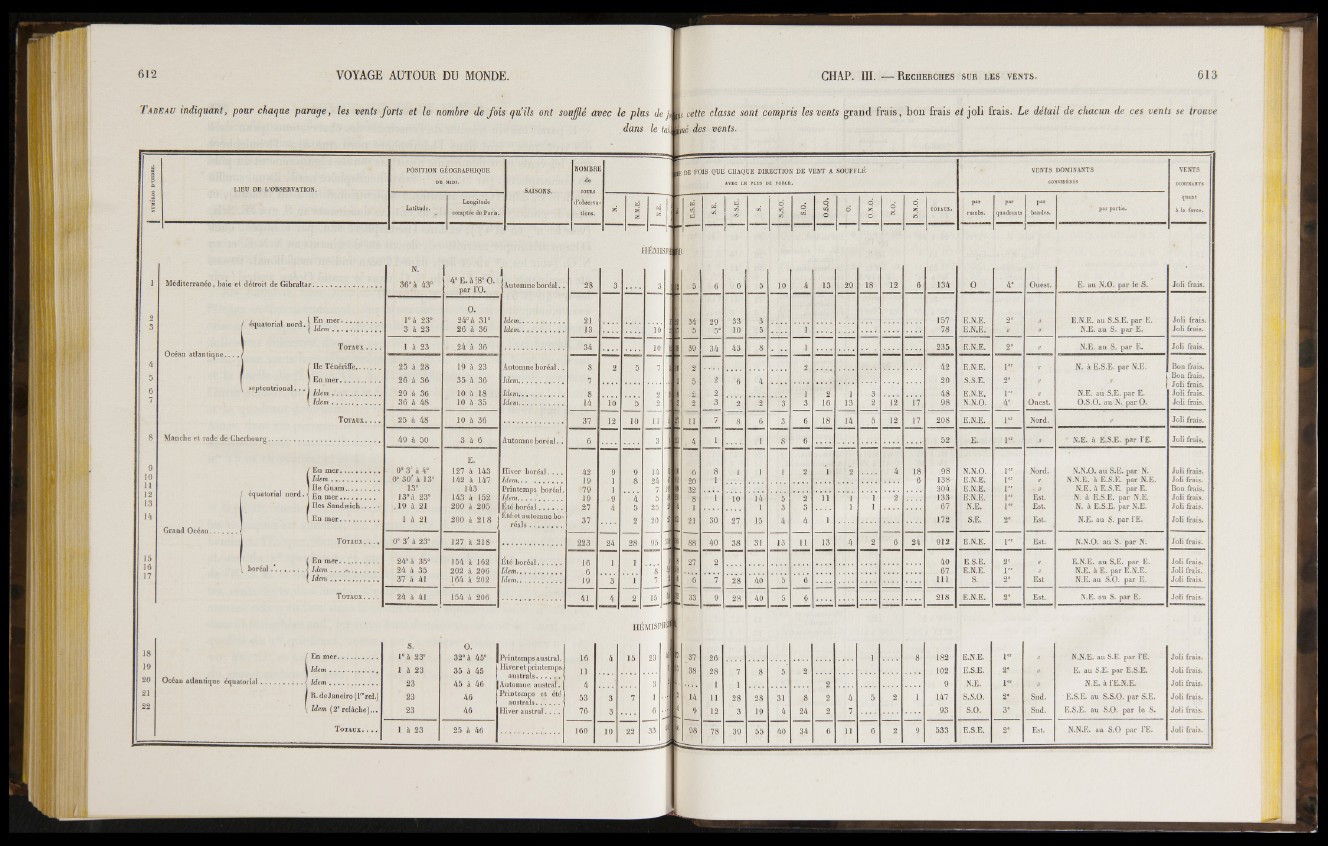 612 VOYAGE AUTOUR DU MONDE.
CHAP. III. — RECHERCHES SUR LES VENTS. 613
TABEAU indiquant, pour chaque parage, les vents forts et le nombre de fois qu'ils ont soufflé avec le plus de
cette classe sont compris les vents grand frais, bon frais et joli frais. Le détail de chacun de ces vents se trouve
dans le des vents.
LIEU DE L'OBSERVATION. POSITION GÉOGRAPHIQUE SAISONS. NOMBRE DE FOIS QUE CHAQUE DIRECTION DE VENT A SOUFFLÉ VENTS DOMINANTS VENTS
OU MIDI. de AVEC LE PLUS DE FORCE. CONSIDÉRÉS DOMINANTS
Latitude. Longitude comptée de Paris. jours d'observations. N. N.N.E. N.E. E.S.E. S.E. S.S.E. S. S.S.O. S.O. O.S.O. O. O.N.O. N.O. N.N.O. TOTAUX. par rumbs. par quadrants par bandes. par partie. quant à la force.
N.
1 Méditerranée, baie et détroit de Gibraltar 36° à 43° 4° E. à 8° O. par l'O. Automne boréal.. 28 3 .... 3 5 6 6 5 10 4 13 20 18 12 6 134 O 4e Ouest. E. au N.O. par le S. Joli frais.
O.
2 Océan atlantique.... équatorial nord. En mer 1° à 23° 24° à 31° Idem 21 34 29 33 3 157 E.N.E. 2e " E.N.E. au S.S.E. par E. Joli frais.
3 Idem 3 à 23 26 à 36 Idem 13 10 5 5 10 5 1 78 E.N.E. " " N.E. au S. par E. Joli frais.
TOTAUX.... 1 à 23 24 à 36 34 10 39 34 43 8 1 235 E.N.E. 2e " N.E. au S. par E. Joli frais.
4 septentrional... Ile Ténériffe 25 à 28 19 à 23 Automne boréal.. 8 2 5 7 2 2 42 E.N.E. 1er " N. à E.S.E. par N.E. Bon frais.
5 En mer 26 à 36 35 à 36 Idem 7 5 2 6 4 20 S.S.E. 2e " " Bon frais. Joli frais.
6 Idem 29 à 36 10 à 18 Idem 8 2 2 2 1 2 1 3 48 E.N.E. 1er " N.E. au S.E. par E. Joli frais.
7 Idem 36 à 48 10 à 35 Idem 14 10 5 2 2 3 2 2 3 3 16 13 2 12 17 98 N.N.O. 4e Ouest. O.S.O. au N. par O. Joli frais.
TOTAUX.... 25 à 48 10 à 36 37 12 10 11 11 7 8 6 3 6 18 14 5 12 17 208 E.N.E. 1er Nord. " Joli frais.
8 Manche et rade de Cherbourg 49 à 50 3 à 6 Automne boréal.. 6 3 4 1 1 8 6 52 E. 1er " N.E. à E.S.E. par l'E. Joli frais.
E.
9 Grand Océan équatorial nord. En mer 0° 3' à 4° 127 à 145 Hiver boréal.... 42 9 9 14 6 8 1 1 1 2 1 2 .... 4 18 98 N.N.O. 1er Nord. N.N.O. au S.E. par N. Joli frais.
10 Idem 0° 30' à 13° 142 à 147 Idem 19 1 8 24 20 1 6 138 E.N.E. 1er " N.N.E. à E.S.E. par N.E. Joli frais.
11 Ile Guam 15° 143 Printemps boréal. 79 1 .... 7 32 304 E.N.E. 1er " N.E. à E.S.E. par E. Bon frais.
12 En mer 13° à 23° 143 à 152 Idem 19 9 4 5 8 1 10 14 5 2 11 1 1 2 133 E.N.E. 1er Est. N. à E.S.E. par N.E. Joli frais.
13 Iles Sandwich 19 à 21 200 à 205 Été boréal 27 4 5 25 1 1 3 3 1 1 67 N.E. 1er Est. N. à E.S.E. par N.E. Joli frais.
14 En mer 1 à 21 200 à 218 Été et automne boréals 37 .... 2 20 21 30 27 15 4 4 1 172 S.E. 2e Est. N.E. au S. par l'E. Joli frais.
TOTAUX.... 0° 3' à 23° 127 à 218 223 24 28 95 88 40 38 31 13 11 13 4 2 6 24 912 E.N.E. 1er Est. N.N.O. au S. par N. Joli frais.
15 boréal En mer 24° à 35° 154 à 162 Été boréal 16 1 1 27 2 40 E S.E. 2e " E.N.E. au S.E. par E. Joli frais.
16 Idem 24 à 35 202 à 206 Idem 6 8 67 E.N.E. 1er " N.E. à E. par E.N.E. Joli frais.
17 Idem 37 à 41 164 à 202 Idem 19 3 1 7 6 7 28 40 5 6 111 S. 2e Est N.E. au S.O. par E. Joli frais.
TOTAUX.... 24 à 41 154 à 206 41 4 2 15 33 9 28 40 5 6 218 E.N.E. 2e Est. N.E. au S. par E. Joli frais.
S. O.
18 Océan atlantique équatorial En mer 1° à 23° 32° à 45° Printemps austral. 16 4 15 23 37 26 1 8 182 E.N.E. 1er " N.N.E. au S.E. par l'E. Joli frais.
19 Idem 1 à 23 35 à 45 Hiver et printemps australs 11 38 28 7 8 5 2 102 E.S.E. 2e " E. au S.E. par E.S.E. Joli frais.
20 Idem 23 45 à 46 Automne austral. 4 3 1 1 2 9 N.E. 1er " N.E. à l'E.N.E. Joli frais.
21 R. de Janeiro (1re rel.) 23 46 Printemps et été australs 53 3 7 1 14 11 28 28 31 8 2 4 5 2 1 147 S.S.O. 2e Sud. E.S.E. au S.S.O. par S.E. Joli frais.
22 Idem (2e relâche)... 23 46 Hiver austral.... 76 3 .... 6 9 12 3 19 4 24 2 7 93 S.O. 3e Sud. E.S.E. au S.O. par le S. Joli frais.
TOTAUX.... 1 à 23 25 à 46 160 10 22 33 98 78 39 55 40 34 6 11 6 2 9 533 E.S.E. 2e Est. N.N.E. au S.O par l'E. Joli frais.